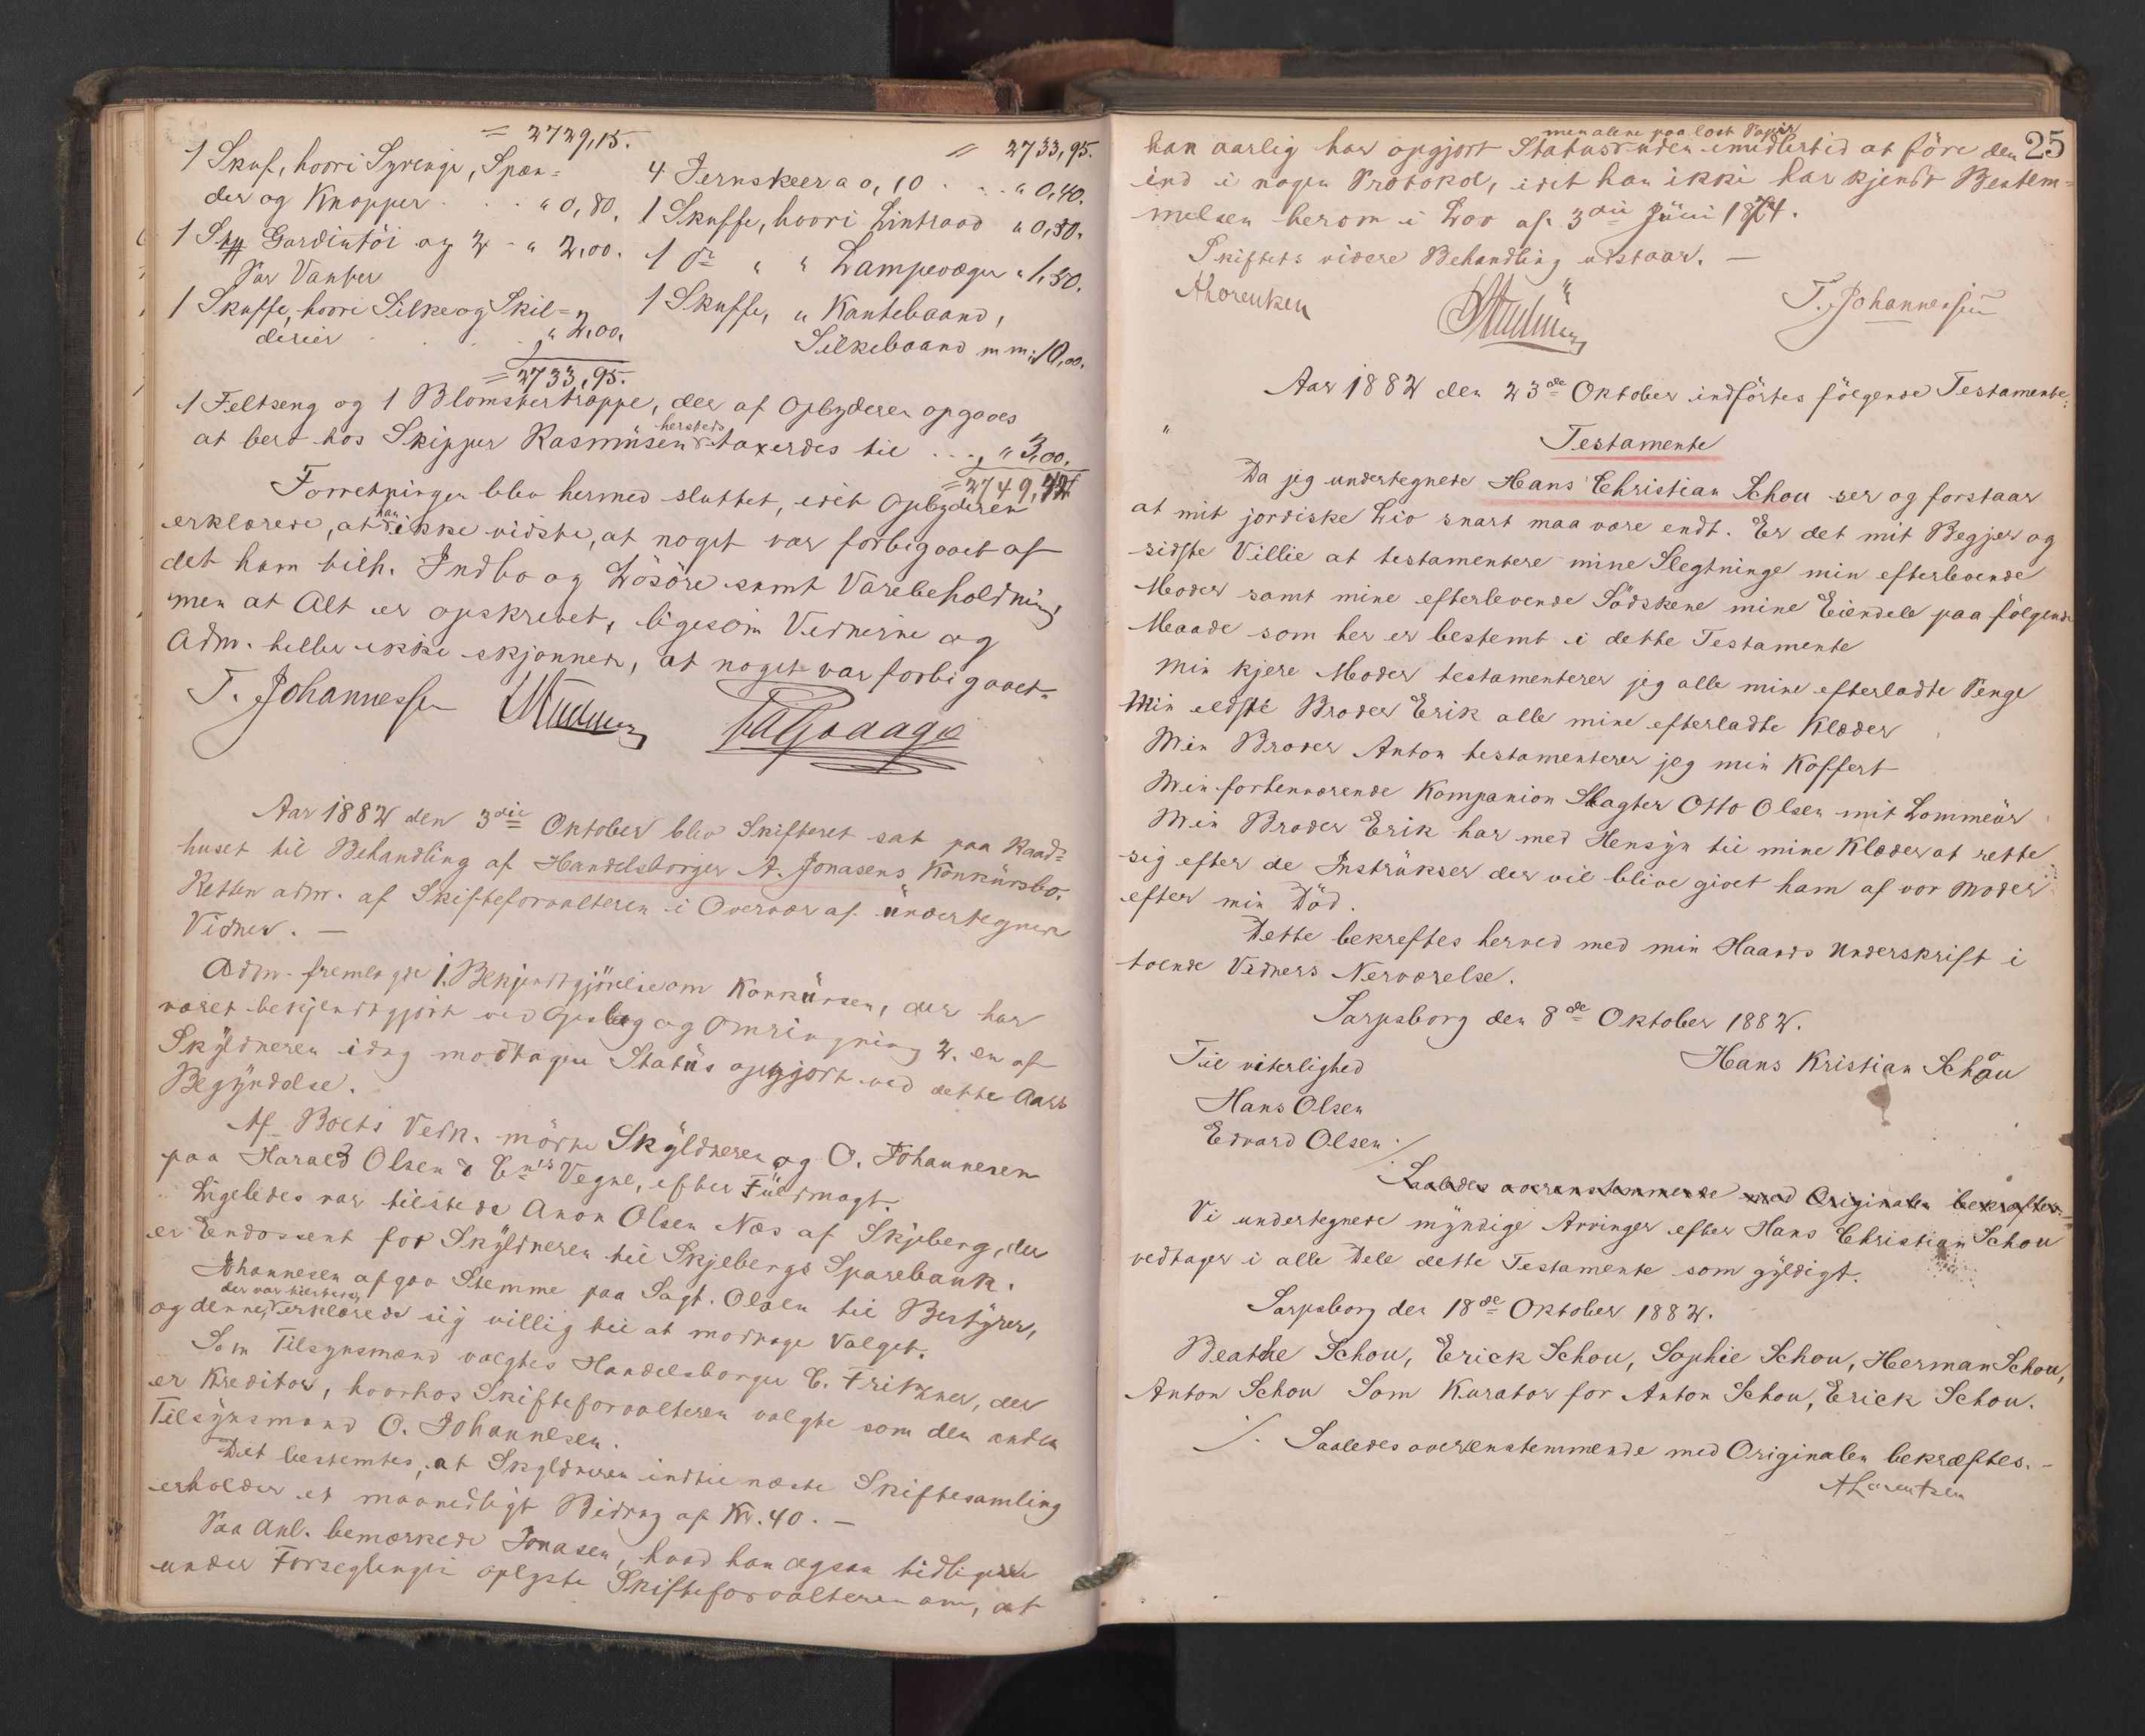 = 2729,15.
1 Skuf, hvori Syrenge, Spæn=
der og Knapper . . . " 0,80.
1 Skp Gardintöi og 2 - " 2,00.
Par Vanter
1 Skuffe, hvori Silke og Skil=
derier . . . " 2,00.
= 2733,95.
= 2733,95.
4 Jernskeer a 0,10 . . . " 0,40.
1 Skuffe, hvori Lintraad " 0,80.
1 do " " Lampevæger " 1,50.
1 Skuffe, " Kantebaand,
Silkebaand m m: 10,00.
1 Feltseng og 1 Blomstertrappe, der af Opbyderen opgaves
at bero hos Skipper Rasmüsen hersteds taxerdes til . . . " 3,00.
= 2749,
Forretningen blev hermed sluttet, idet Opbyderen
erklærede, at han ikke vidste, at noget var forbigaaet af
det ham tilh. Indbo og Lösöre samt Varebeholdning
men at Alt er opskrevet, ligesom Vidnerne og
Adm. heller ikke skjönner, at noget var forbigaaet.
T. Johannessen
Aar 1882 den 3die Oktober blev Skifteret sat paa Raad=
huset til Behandling af Handelsborger A. Jonasens Konkürsbo.
Retten adm. af Skifteforvalteren i Overvær af ündertegnede
Vidner. —
Adm. fremlagde 1. Bekjendtgjörelse om Konkürsen, der har
været bekjendtgjort ved Opslag og Omringning 2. en af
Skÿldneren idag modtagen Statüs opgjort ved dette Aars
Begÿndelse.
Af Boets Vedk. mödte Skÿldneren og O. Johannesen
paa Harald Olsen & Cnis Vegne, efter Füldmagt.
Ligeledes var tilstede Anon Olsen Næs af Skjeberg, der
er Endossent for Skÿldneren til Skjebergs Sparebank.
Johannesen afgav Stemme paa Sagf. Olsen til Bestÿrer,
og denne, der var tilstede, erklærede sig villig til at modtage Valget.
Som Tilsynsmænd valgtes Handelsborger C. Frikner, der
er Kreditor, hvorhos Skifteforvalteren valgte som den anden
Tilsÿnsmand O. Johannesen.
Det bestemtes, at Skyldneren indtil næste Skiftesamling
erholder et maanedligt Bidrag af Kr. 40. —
Paa Anl. bemærkede Jonasen, hvad han ogsaa tidligere
under Forseglingen oplyste Skifteforvalteren om, at
25
han aarlig har opgjort Status men alene paa löst Papir uden imidlertid at före den
ind i nogen Protokol, idet han ikke har kjendt Bestem=
melsen herom i Lov af 3die Jüni 1874.
Skiftets videre Behandling udstaar. —
ALorentzen
T. Johannessen
Aar 1882 den 23de Oktober indförtes fölgende Testamente:
" Testamente
Da jeg undertegnede Hans Christian Schou ser og forstaar
at mit jordiske Liv snart maa være endt. Er det mit Begjer og
sidste Villie at testamentere mine Slegtninge min efterlevende
Moder samt mine efterlevende Södskene mine Eiendele paa fölgende
Maade som her er bestemt i dette Testamente
Min kjere Moder testamenterer jeg alle mine efterladte Penge
Min eldste Broder Erik alle mine efterladte Klæder
Min Broder Anton testamenterer jeg min Koffert
Min forhenværende Kompanion Slagter Otto Olsen mit Lommeür
Min Broder Erik har med Hensÿn til mine Klæder at rette
sig efter de Instrükser der vil blive givet ham af vor Moder
efter min Död.
Dette bekreftes herved med min Haands Underskrift i
tvende Vidners Nerværelse.
Sarpsborg den 8de Oktober 1882.
Til viterlighed
Hans Kristian Schou
Hans Olsen
Edvard Olsen ./.
Saaledes overenstemmende med Originalen bekræftes.
Vi undertegnede mÿndige Arvinger efter Hans Christian Schou
vedtager i alle Dele dette Testamente som gÿldigt.
Sarpsborg den 18de Oktober 1882.
Beathe Schou, Erick Schou, Sophie Schou, Herman Schou,
Anton Schou Som Kurator for Anton Schou, Erick Schou.
./. Saaledes overenstemmende med Originalen bekræftes. -
ALorentzen